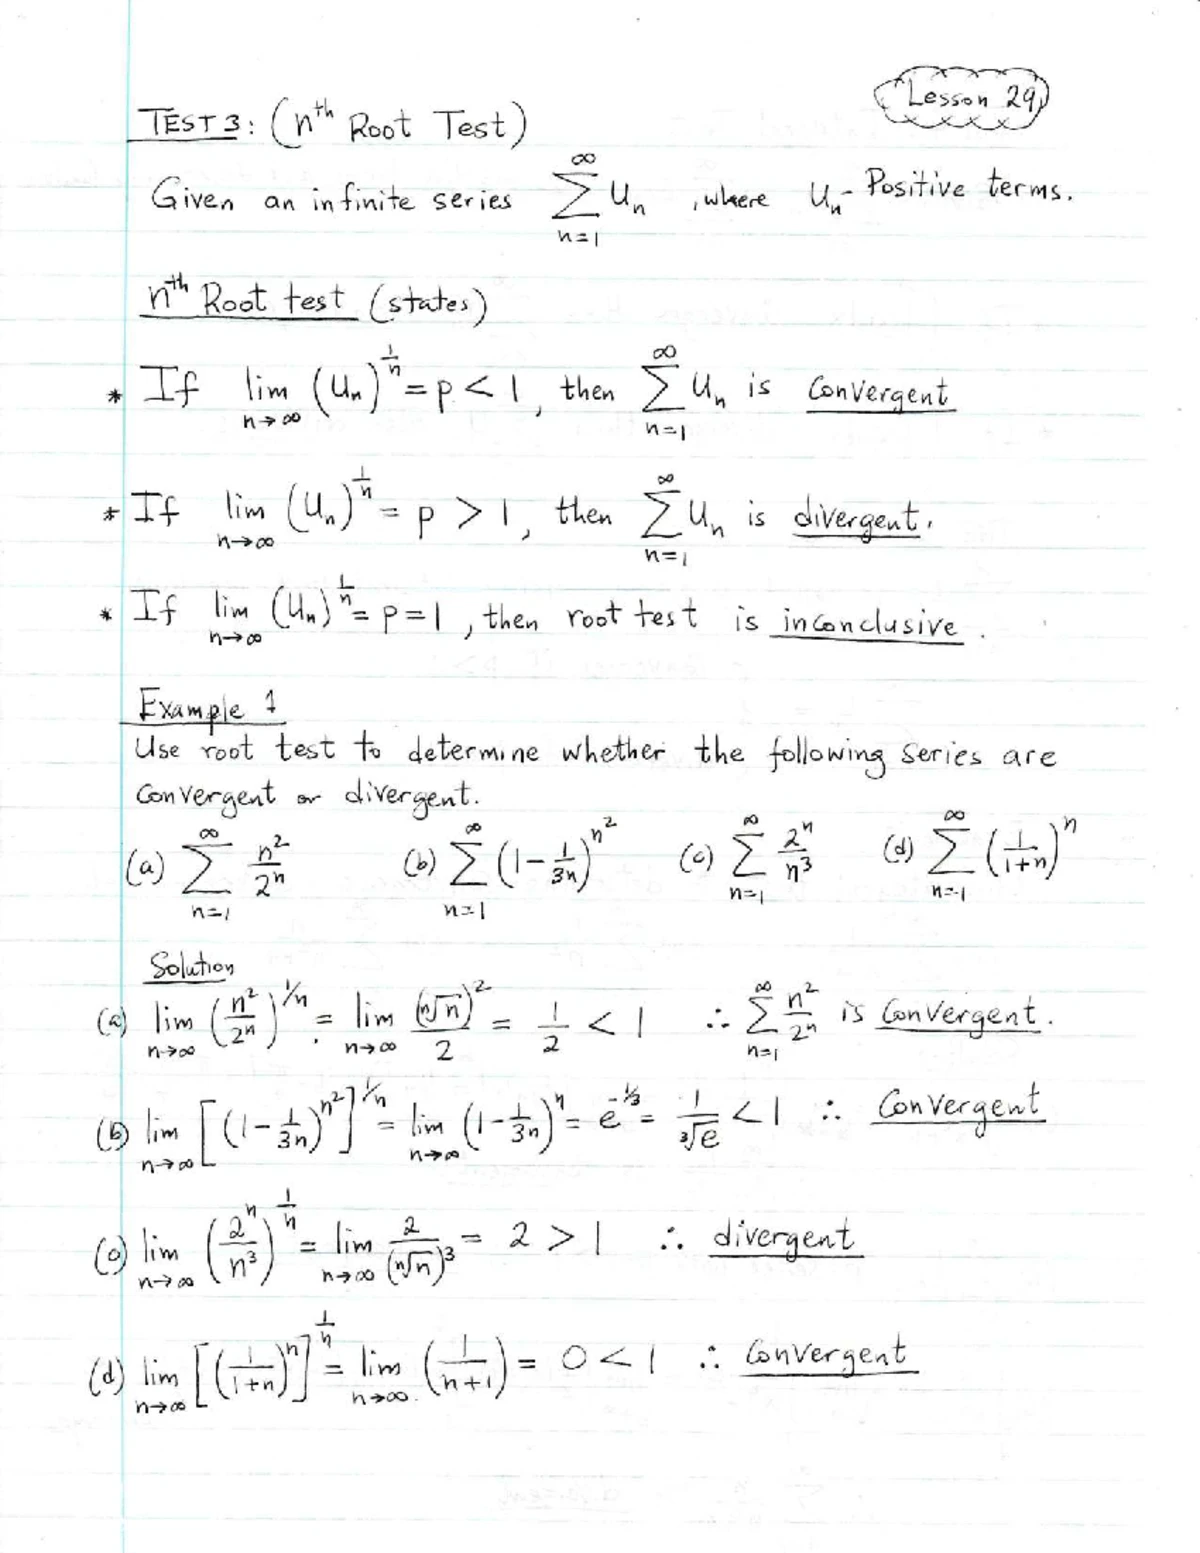 Lesson 29
TEST 3: (nth Root Test)
Given an infinite series ∑_{n=1}^{∞} Un , where Un - Positive terms.
nth Root test (states)
* If lim_{n→∞} (Un)^{1/n} = p < 1, then ∑_{n=1}^{∞} Un is Convergent
* If lim_{n→∞} (Un)^{1/n} = p > 1, then ∑_{n=1}^{∞} Un is divergent.
* If lim_{n→∞} (Un)^{1/n} = p = 1, then root test is inconclusive.
Example 1
Use root test to determine whether the following series are
Convergent or divergent.
(a) ∑_{n=1}^{∞} n²/2ⁿ (b) ∑_{n=1}^{∞} (1 - 1/3n)^{n²} (c) ∑_{n=1}^{∞} 2ⁿ/n³ (d) ∑_{n=1}^{∞} (1/(1+n))ⁿ
Solution
(a) lim_{n→∞} (n²/2ⁿ)^{1/n} = lim_{n→∞} (ⁿ√n)²/2 = 1/2 < 1 ∴ ∑_{n=1}^{∞} n²/2ⁿ is Convergent.
(b) lim_{n→∞} [(1 - 1/3n)^{n²}]^{1/n} = lim_{n→∞} (1 - 1/3n)ⁿ = e^{-1/3} = 1/³√e < 1 ∴ Convergent
(c) lim_{n→∞} (2ⁿ/n³)^{1/n} = lim_{n→∞} 2/(ⁿ√n)³ = 2 > 1 ∴ divergent
(d) lim_{n→∞} [(1/(1+n))ⁿ]^{1/n} = lim_{n→∞} (1/(n+1)) = 0 < 1 ∴ Convergent